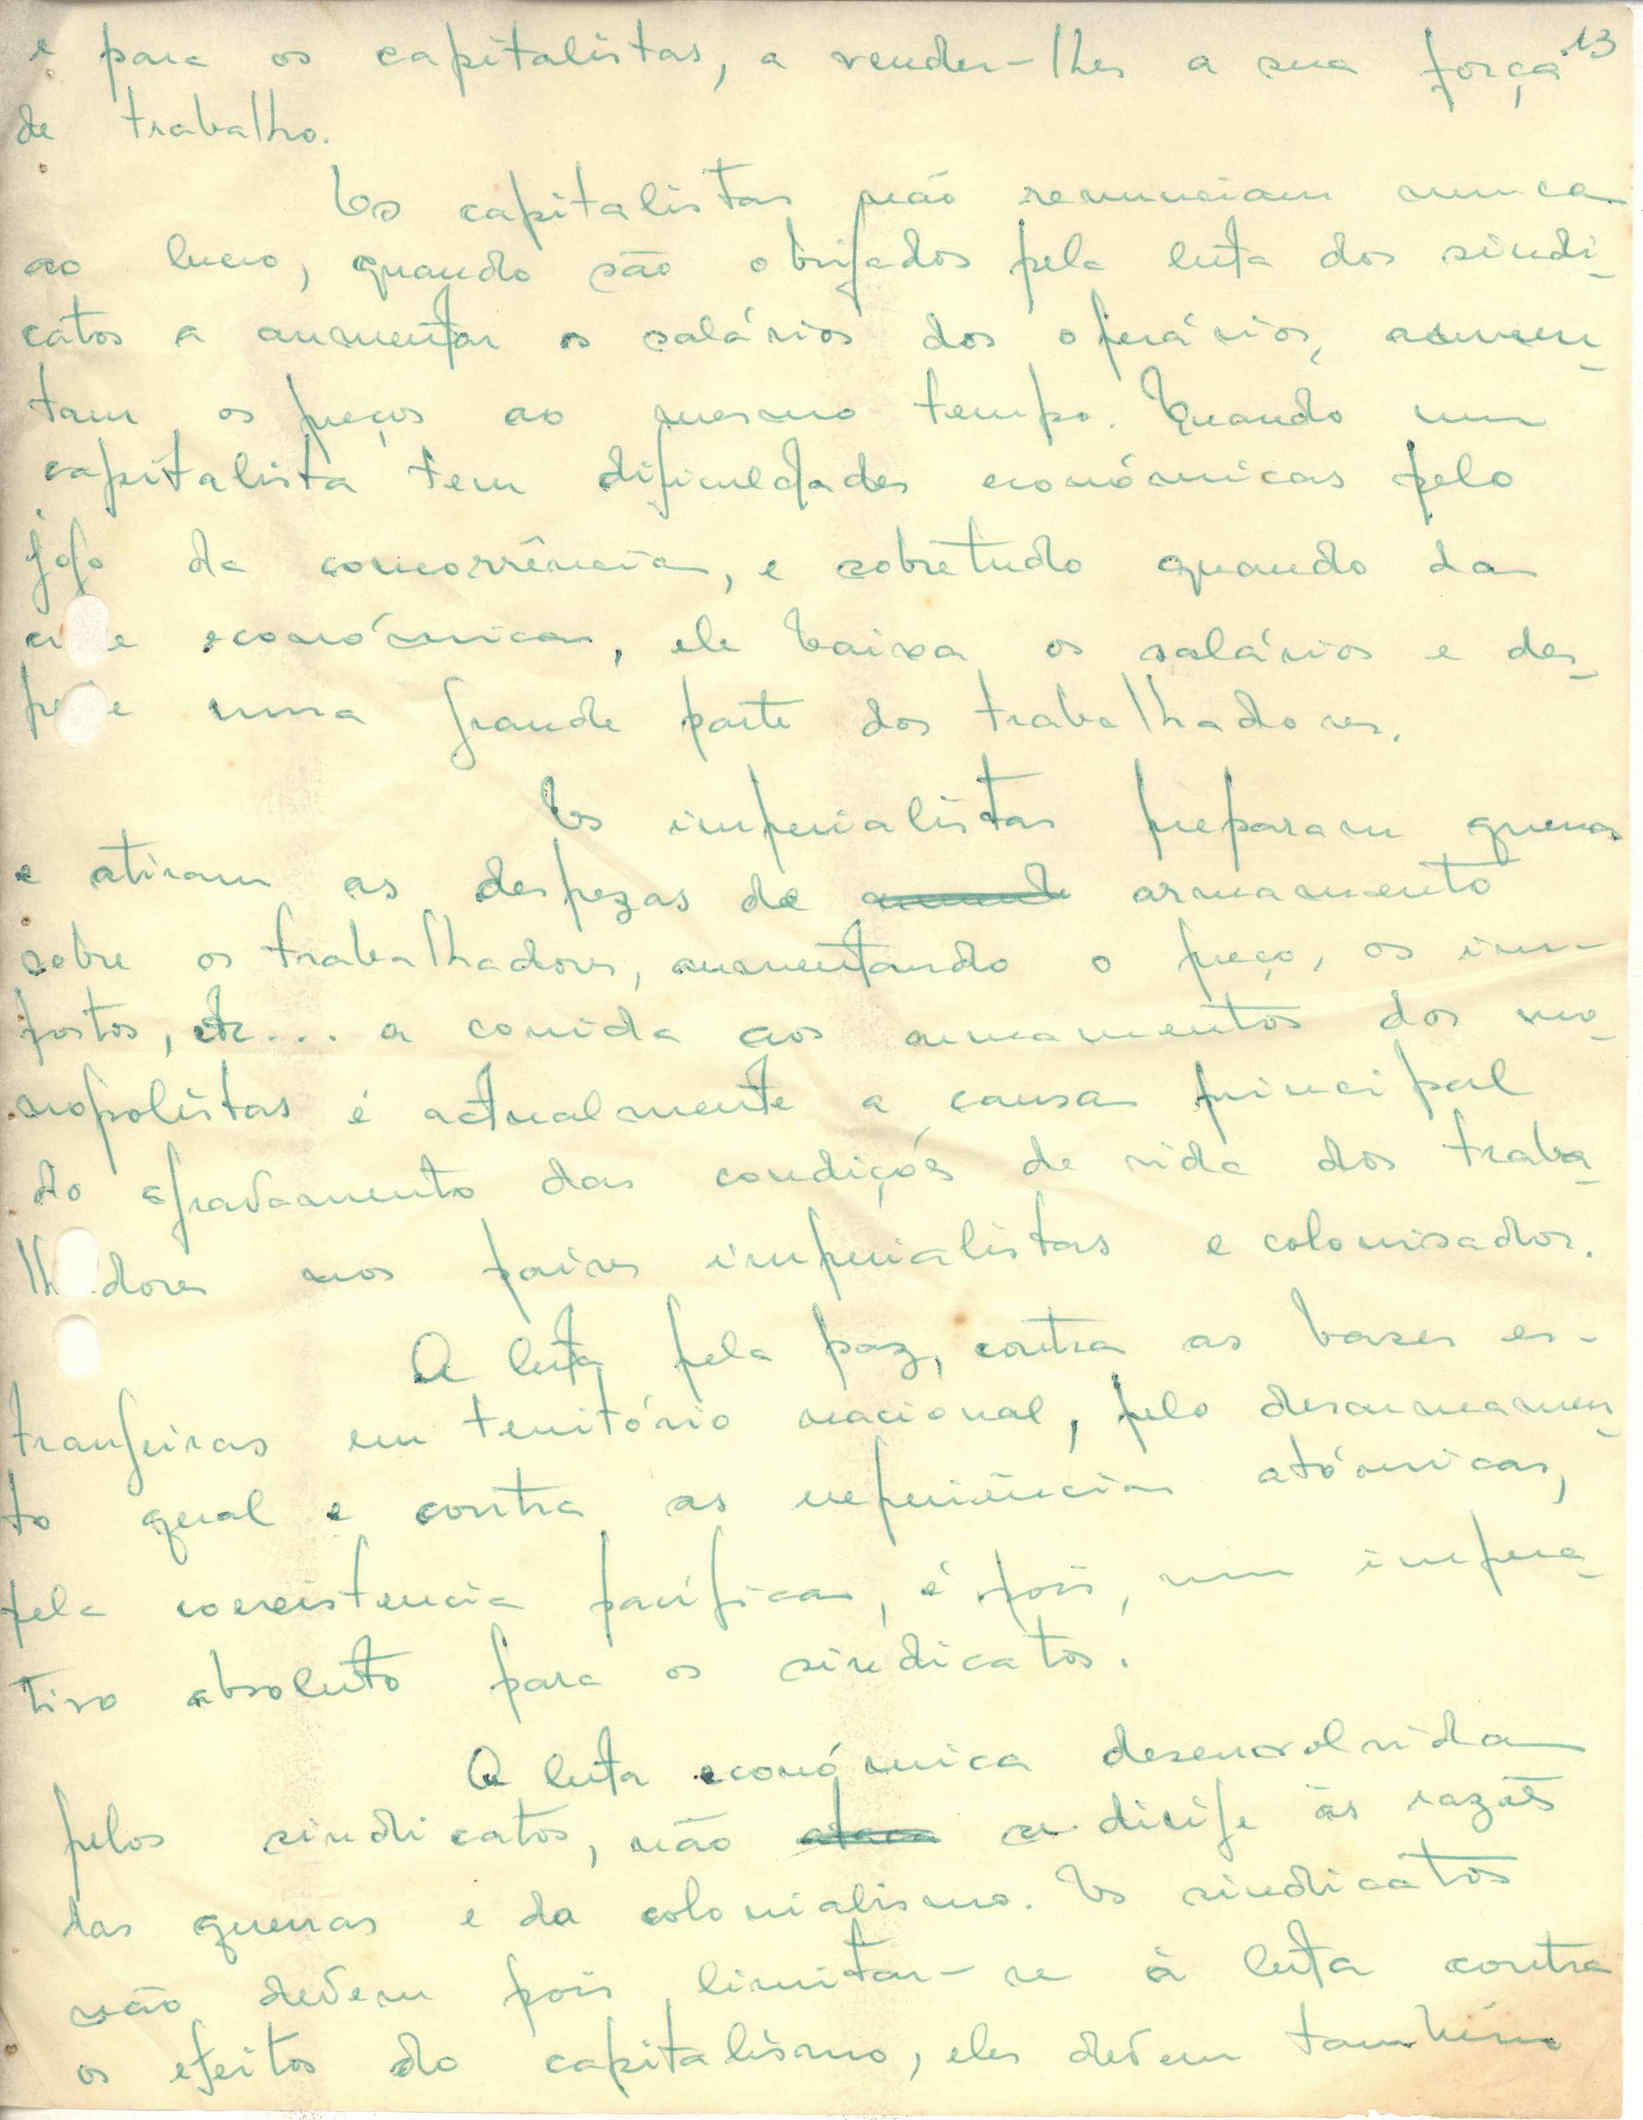 13
e para os capitalistas, a vender-lhes a sua força
de trabalho.
Os capitalistas não renunciam nunca
ao lucro, quando são obrigados pela luta dos sindi-
catos a aumentar os salários dos operários, aumen-
tam os preços ao mesmo tempo. Quando um
capitalista tem dificuldades económicas pelo
jogo da concorrência, e sobretudo quando da
cri e económica, ele baixa os salários e des-
pe e uma grande parte dos trabalhadores.
Os imperialistas preparam guerras
e atiram as despezas de armamento
sobre os trabalhadores, aumentando o preço, os im-
postos, etc... a corrida aos armamentos dos mo-
nopolistas é actualmente a causa principal
do agravamento das condições de vida dos traba-
lh dores nos paises imperialistas e colonisador.
A luta pela paz, contra as bases es-
trangeiras em território nacional, pelo desarmamen-
to geral e contra as experiências atómicas,
pela coexistencia pacífica, é pois, um impera-
tivo absoluto para os sindicatos.
A luta económica desenvolvida
pelos sindicatos, não se dirige às razões
das guerras e do colonialismo. Os sindicatos
não devem pois limitar-se à luta contra
os efeitos do capitalismo, eles devem também